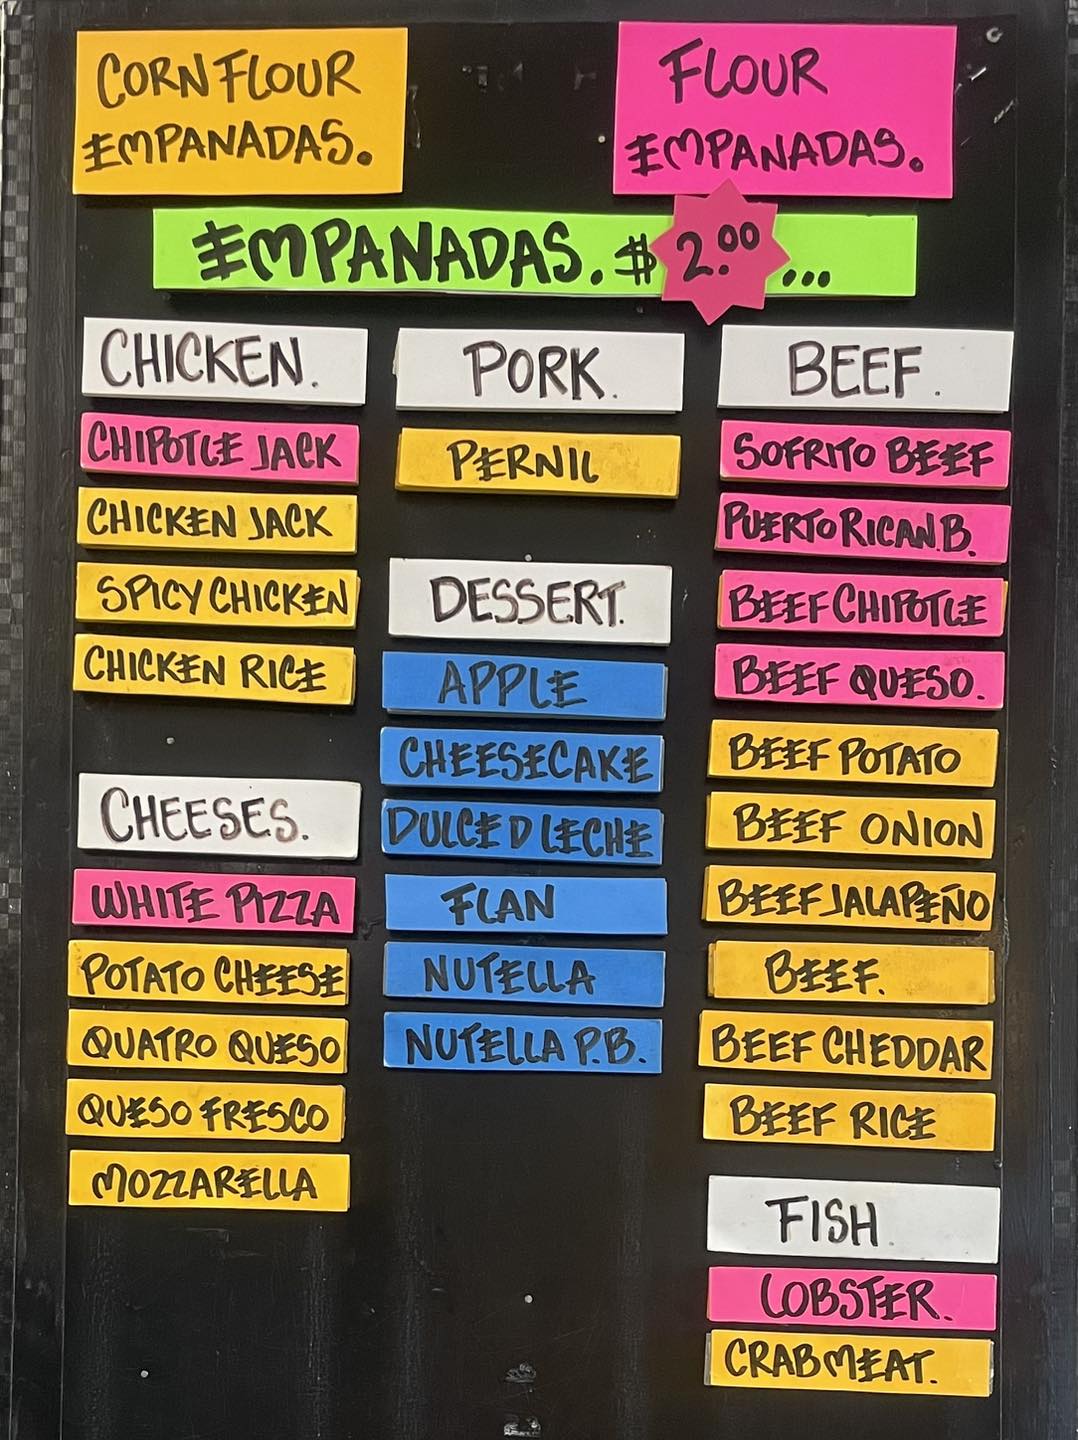 CORN FLOUR
EMPANADAS.
FLOUR
EMPANADAS.
EMPANADAS. $2.00...
CHICKEN.
CHIPOTLE JACK
CHICKEN JACK
SPICY CHICKEN
CHICKEN RICE
CHEESES.
WHITE PIZZA
POTATO CHEESE
QUATRO QUESO
QUESO FRESCO
MOZZARELLA
PORK.
PERNIL
DESSERT.
APPLE
CHEESECAKE
DULCE D LECHE
FLAN
NUTELLA
NUTELLA P.B.
BEEF.
SOFRITO BEEF
PUERTO RICAN.B.
BEEF CHIPOTLE
BEEF QUESO.
BEEF POTATO
BEEF ONION
BEEF JALAPEÑO
BEEF.
BEEF CHEDDAR
BEEF RICE
FISH.
LOBSTER.
CRABMEAT.